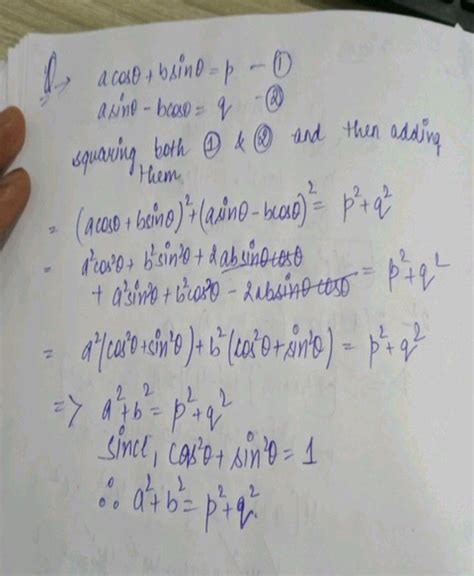 Q→ acosθ + bsinθ = p — ①
asinθ - bcosθ = q — ②
squaring both ① & ② and then adding
them
= (acosθ + bsinθ)² + (asinθ - bcosθ)² = p² + q²
= a²cos²θ + b²sin²θ + 2absinθcosθ
+ a²sin²θ + b²cos²θ - 2absinθcosθ = p² + q²
= a²(cos²θ + sin²θ) + b²(cos²θ + sin²θ) = p² + q²
=> a² + b² = p² + q²
since, cos²θ + sin²θ = 1
∴ a² + b² = p² + q².